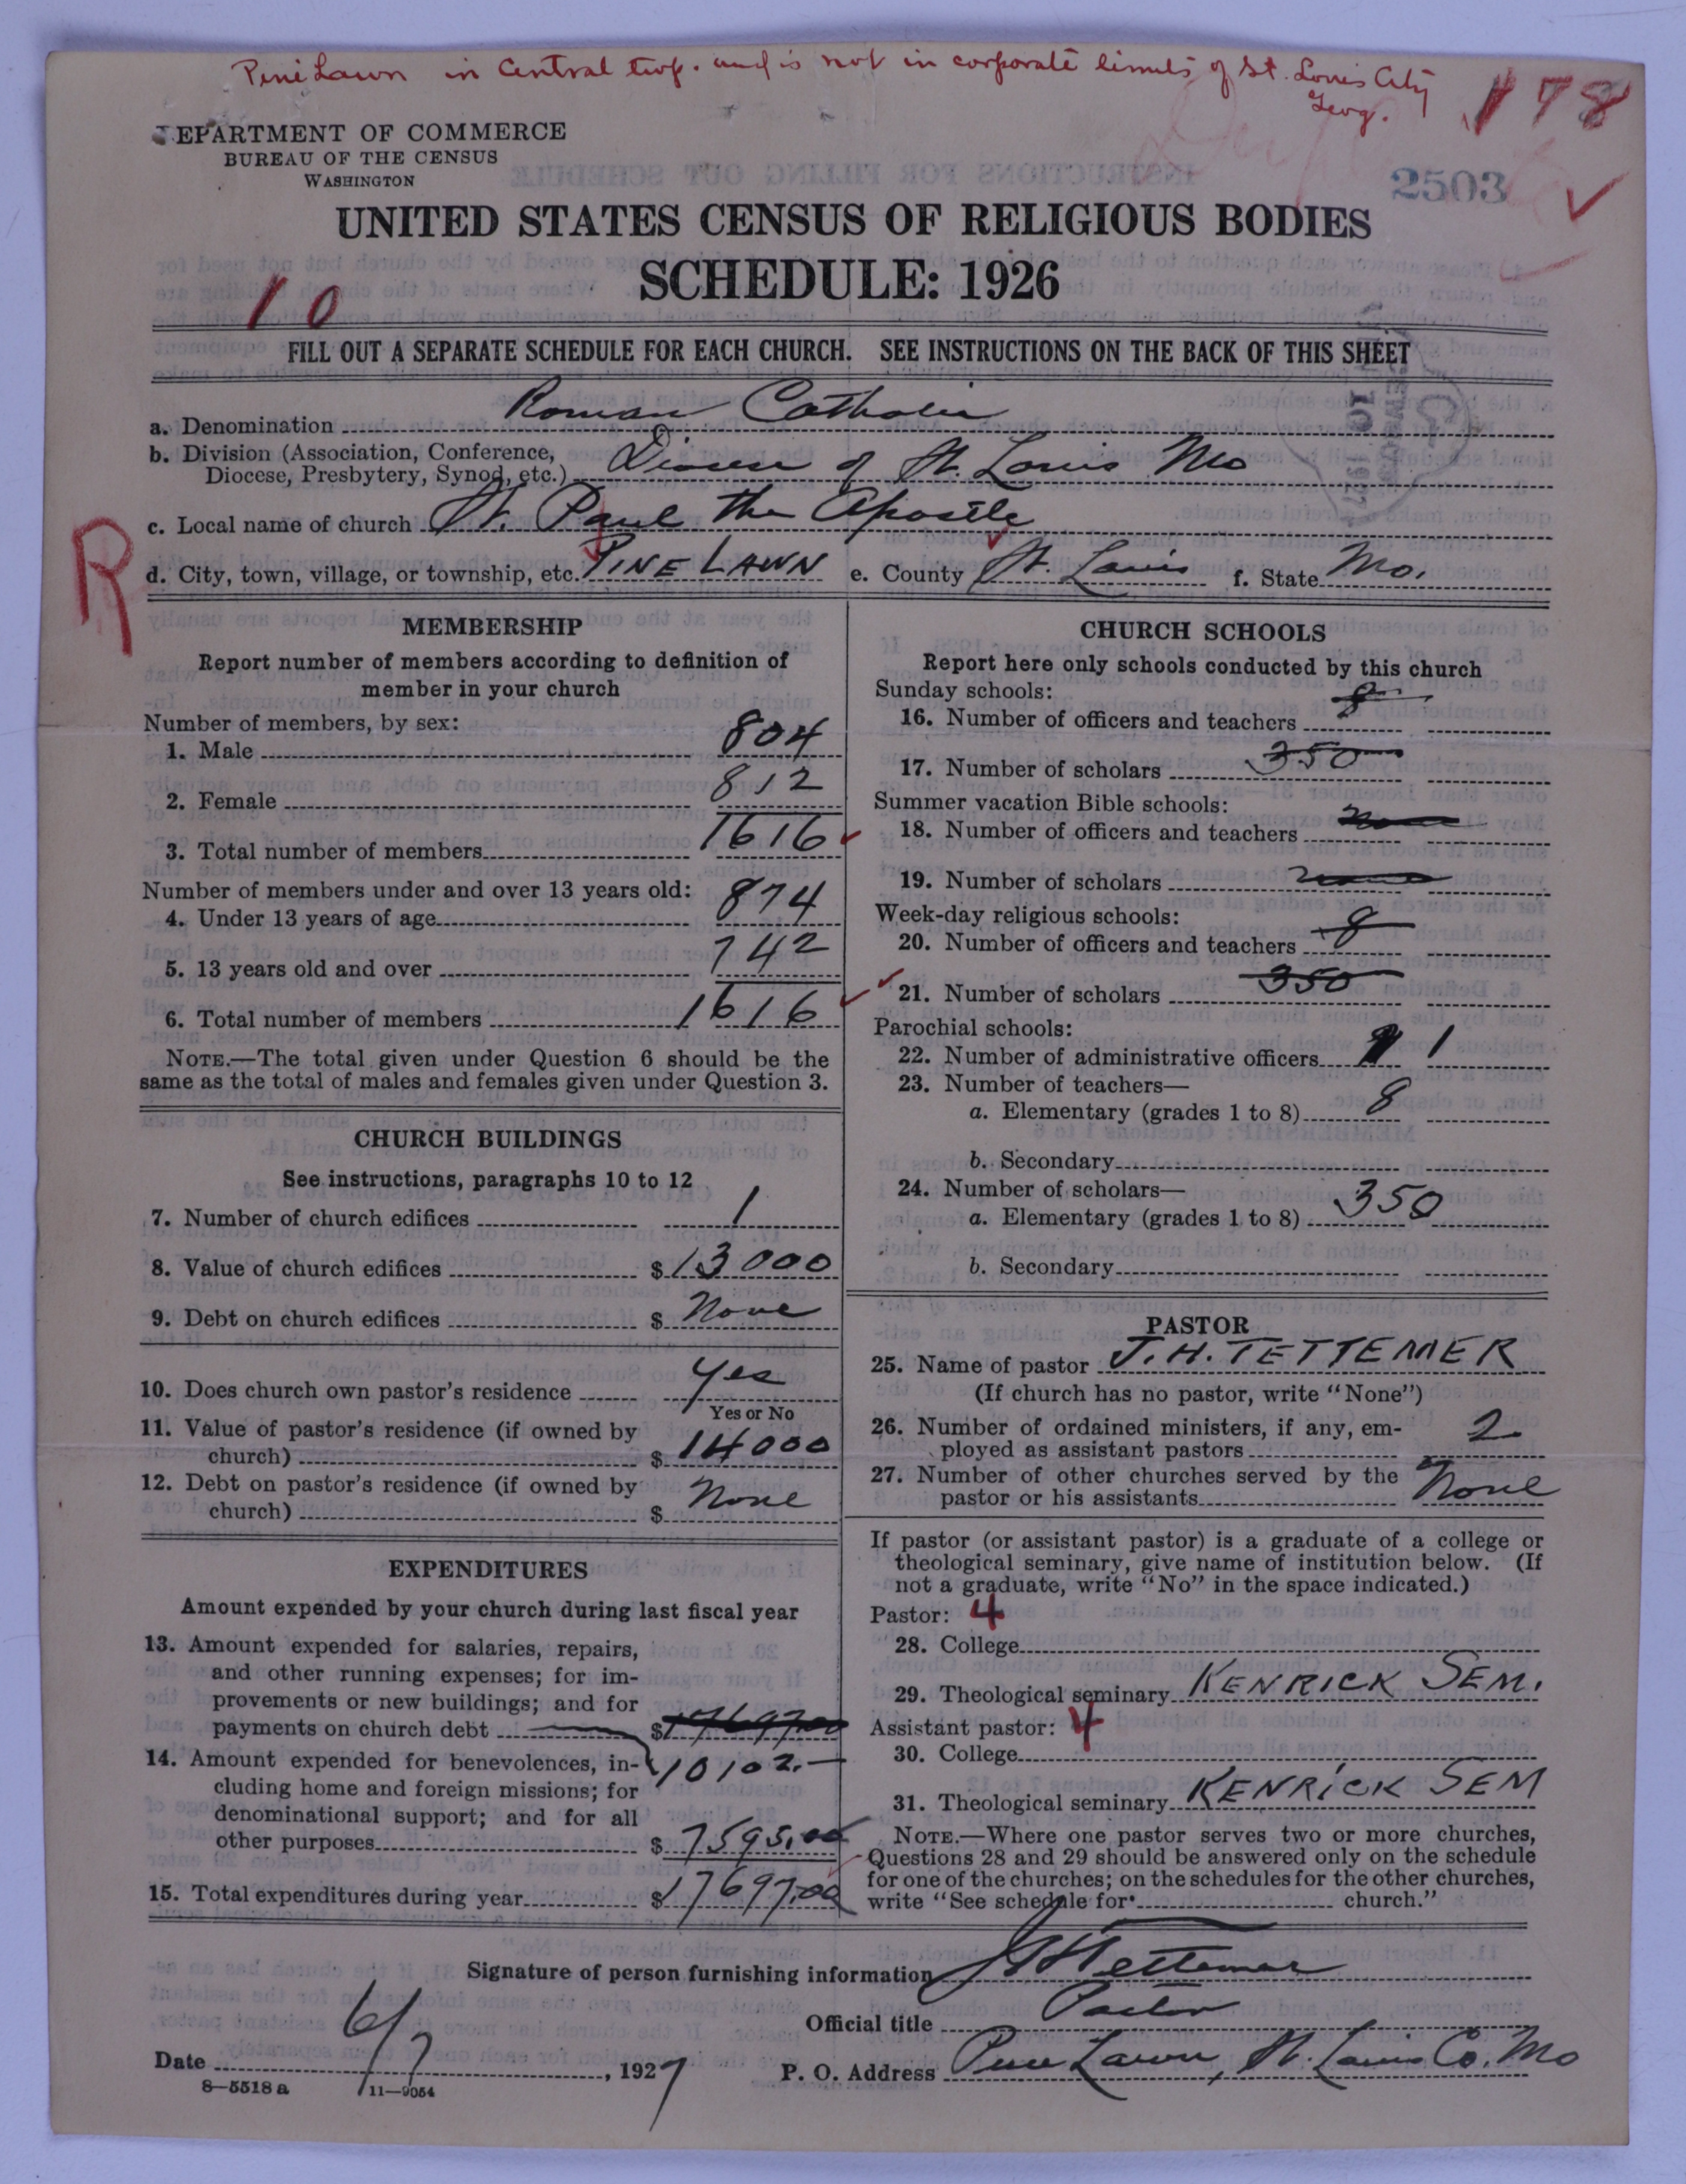 Pine Lawn in Central twp. and is not in corporate limits of St. Louis City
Geog.
178
DEPARTMENT OF COMMERCE
BUREAU OF THE CENSUS
WASHINGTON
2503
UNITED STATES CENSUS OF RELIGIOUS BODIES
SCHEDULE: 1926
10
FILL OUT A SEPARATE SCHEDULE FOR EACH CHURCH. SEE INSTRUCTIONS ON THE BACK OF THIS SHEET
a. Denomination Roman Catholic
b. Division (Association, Conference,
Diocese, Presbytery, Synod, etc.) Diocese of St. Louis Mo
c. Local name of church St. Paul the Apostle
R
d. City, town, village, or township, etc. PINE LAWN e. County St. Louis f. State Mo.
MEMBERSHIP
Report number of members according to definition of
member in your church
Number of members, by sex:
1. Male 804
2. Female 812
3. Total number of members 1616
Number of members under and over 13 years old:
4. Under 13 years of age 874
5. 13 years old and over 742
6. Total number of members 1616
NOTE.—The total given under Question 6 should be the
same as the total of males and females given under Question 3.
CHURCH BUILDINGS
See instructions, paragraphs 10 to 12
7. Number of church edifices 1
8. Value of church edifices $13000
9. Debt on church edifices $ None
10. Does church own pastor's residence Yes
Yes or No
11. Value of pastor's residence (if owned by
church) $ 14000
12. Debt on pastor's residence (if owned by
church) $ None
EXPENDITURES
Amount expended by your church during last fiscal year
13. Amount expended for salaries, repairs,
and other running expenses; for im-
provements or new buildings; and for
payments on church debt $17697.00
14. Amount expended for benevolences, in- 10102.—
cluding home and foreign missions; for
denominational support; and for all
other purposes $ 7595.00
15. Total expenditures during year $17697.00
CHURCH SCHOOLS
Report here only schools conducted by this church
Sunday schools:
16. Number of officers and teachers 8
17. Number of scholars 350
Summer vacation Bible schools:
18. Number of officers and teachers None
19. Number of scholars None
Week-day religious schools:
20. Number of officers and teachers 8
21. Number of scholars 350
Parochial schools:
22. Number of administrative officers 1
23. Number of teachers—
a. Elementary (grades 1 to 8) 8
b. Secondary
24. Number of scholars—
a. Elementary (grades 1 to 8) 350
b. Secondary
PASTOR
25. Name of pastor J. H. TETTEMER
(If church has no pastor, write "None")
26. Number of ordained ministers, if any, em-
ployed as assistant pastors 2
27. Number of other churches served by the
pastor or his assistants None
If pastor (or assistant pastor) is a graduate of a college or
theological seminary, give name of institution below. (If
not a graduate, write "No" in the space indicated.)
Pastor: 4
28. College
29. Theological seminary KENRICK SEM.
Assistant pastor: 4
30. College
31. Theological seminary KENRICK SEM
NOTE.—Where one pastor serves two or more churches,
Questions 28 and 29 should be answered only on the schedule
for one of the churches; on the schedules for the other churches,
write "See schedule for church."
Signature of person furnishing information J H Tettemer
Official title Pastor
Date 6/7, 1927 P. O. Address Pine Lawn, St. Louis Co. Mo
8—5518 a 11—9054